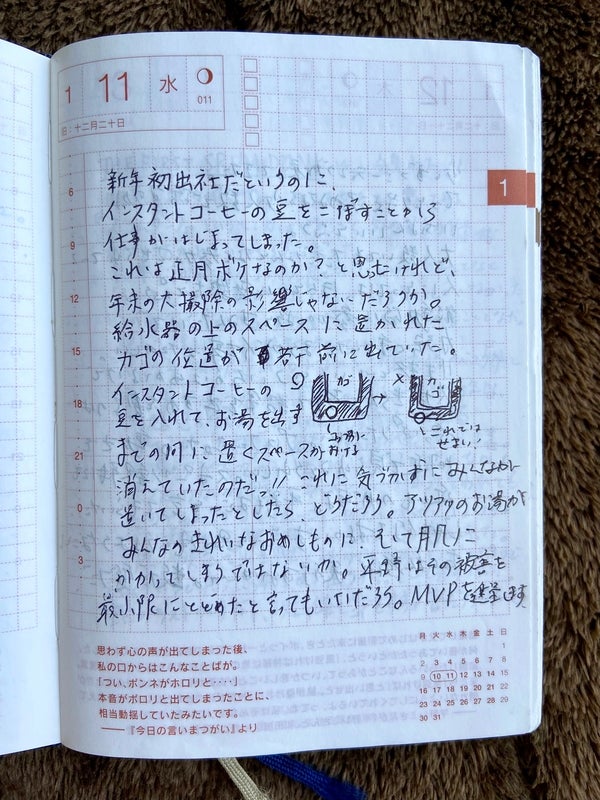 1 11 水
011
旧:十二月二十日
1
6
9
12
15
18
21
0
3
新年初出社だというのに、
インスタントコーヒーの豆をこぼすことから
仕事がはじまってしまった。
これは正月ボケなのか?と思ったけれど、
年末の大掃除の影響じゃないだろうか。
給水器の上のスペースに置かれた
カゴの位置が若干前に出ていた。
インスタントコーヒーの
豆を入れて、お湯を出す
までの間に置くスペースが
消えていたのだっ!! これに気づかずにみんなが
置いてしまったとしたら、どうだろう。アツアツのお湯が
みんなのきれいなおめしものに、そして肌に
かかってしまうではないか。平野はその被害を
最小限にとどめたと言ってもいいだろう。MVPを進呈します
○
カゴ
→
×
カゴ
コップが
おける
これでは
せまい!
思わず心の声が出てしまった後、
私の口からはこんなことばが。
「つい、ボンネがホロリと‥‥」
本音がポロリと出てしまったことに、
相当動揺していたみたいです。
——『今日の言いまつがい』より
月 火 水 木 金 土 日
1
2 3 4 5 6 7 8
9 10 11 12 13 14 15
16 17 18 19 20 21 22
23 24 25 26 27 28 29
30 31